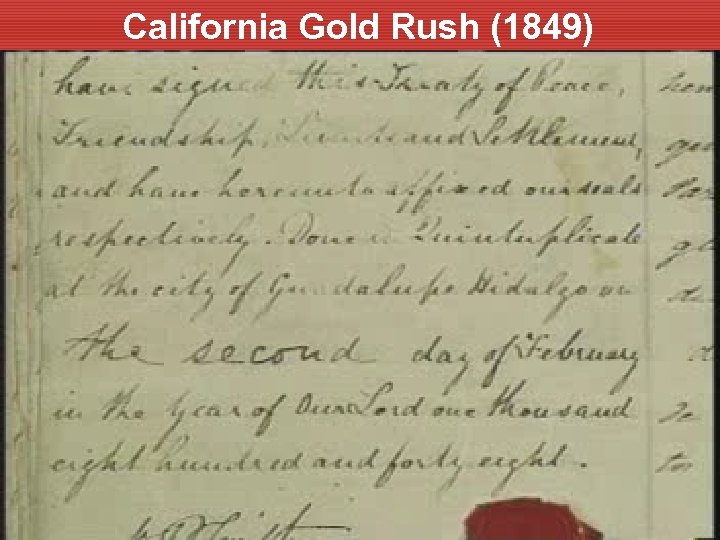 California Gold Rush (1849)
have signed this Treaty of Peace,
Friendship, Limits and Settlement,
and have hereunto affixed our seals
respectively. Done in Quintuplicate
at the city of Guadalupe Hidalgo on
the second day of February
in the year of Our Lord one thousand
eight hundred and forty eight.